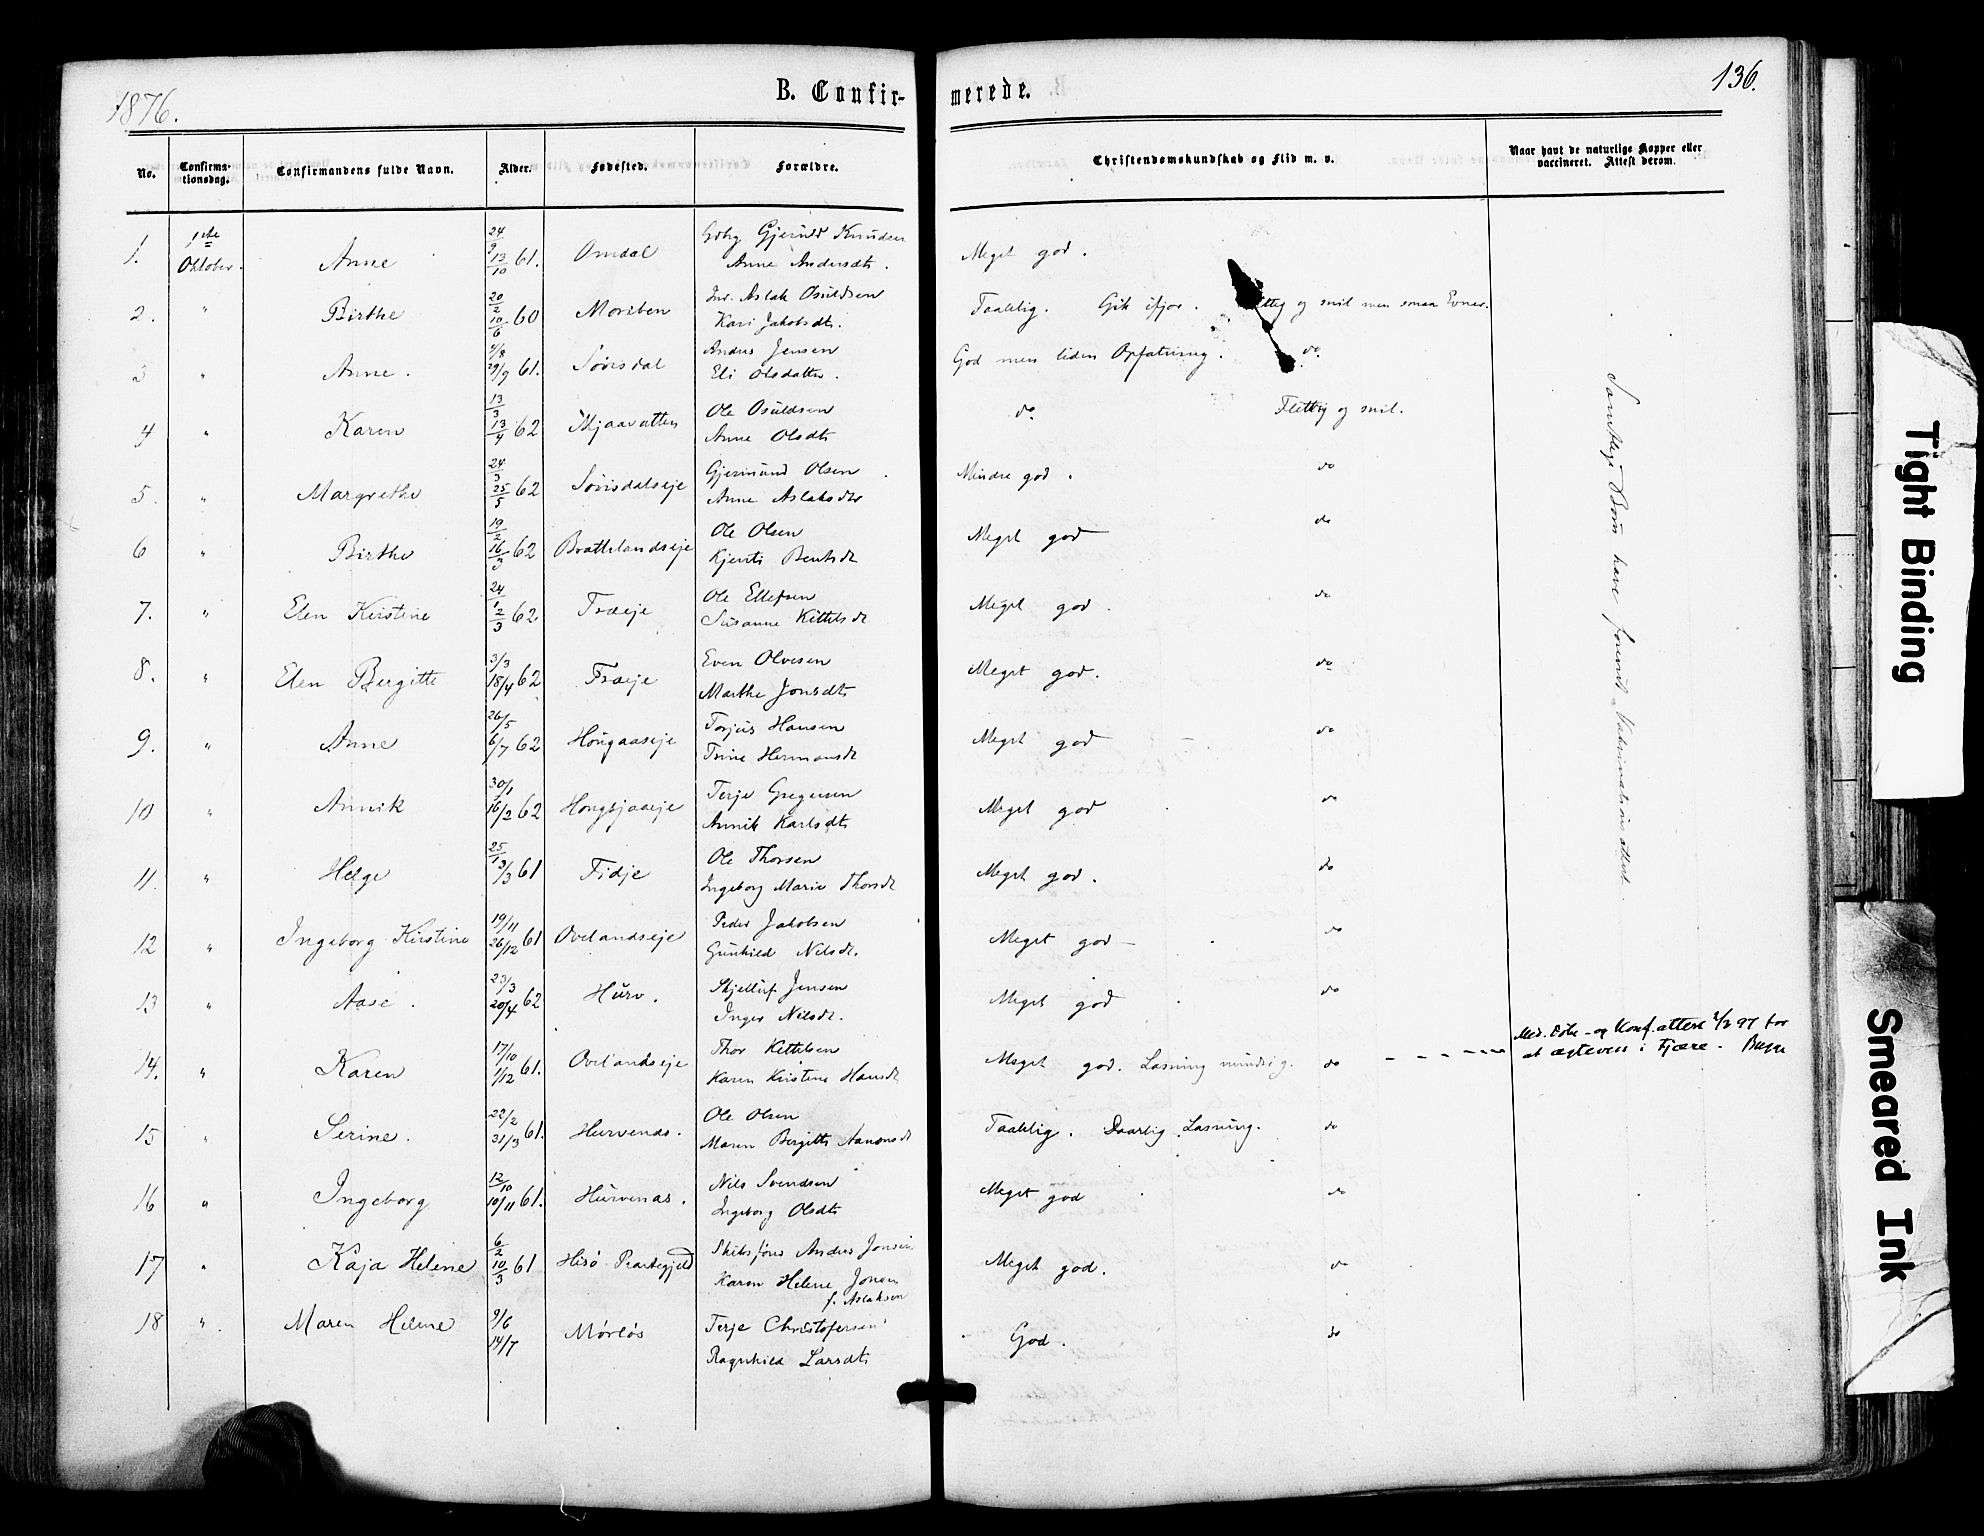 1876.
B. Confir-
merede.
136.
No.
Confirma-
tionsdag.
Confirmandens fulde Navn.
Alder.
Fødested.
Forældre.
Christendomskundskab og Flid m. v.
Naar havt de naturlige Kopper eller
vaccineret. Attest derom.
1. 1ste Oktober. Anne 24/9 13/10 61. Omdal Gjerulf Knudsen
Anne Andersdtr. Meget god.
2. " Birthe 20/2 10/6 60 Moriben Aslak Osuldsen
Kari Jakobsdt. Taalelig. Gik ifjor. og snil men smaa Evner.
3 " Anne. 4/8 29/9 61. Søvisdal Anders Jensen
Eli Olsdatter. God men liden Opfatning. do
4 " Karen 13/3 13/4 62 Mjaavatten Ole Osuldsen
Anne Olsdtr do Flittig og snil.
5. " Margrethe 24/3 25/5 62 Søvisdalseje Gjermund Olsen
Anne Aslaksdtr Mindre god. do
6 " Birthe 19/2 16/3 62 Brattelandseje Ole Olsen
Kjersti Bentsdt Meget god do
7. " Elen Kirstine 24/1 2/3 62 Træeje Ole Ellefsen
Susanne Kittelsdt Meget god. do
8. " Elen Bergitte 3/3 18/4 62 Træeje Even Olvesen
Marthe Jonsdtr Meget god. do
9. " Anne 26/5 6/7 62 Hougaaseje Torjus Hansen
Trine Hermansdt Meget god do
10 " Annik 30/1 16/2 62 Terje Gregersen
Annik Karlsdtr Meget god do
11. " Helge 25/1 3/3 61 Fidje Ole Thorsen
Ingeborg Marie Thorsdt Meget god. do
12 " Ingeborg Kirstine 19/11 26/12 61 Ovelandseje Peder Jakobsen
Gunhild Nilsdt. Meget god do
13 " Aase. 23/3 20/4 62 Hurv. Skjelluf Jensen
Inger Nilsdt. Meget god do
14. " Karen 17/10 1/12 61. Ovelandseje Thor Kittelsen
Karen Kirstine Hansdt Meget god. Læsning mindre g. do
15 " Serine. 22/2 31/3 61. Hurvenes. Ole Olsen
Maren Bergitte Aanonsdt Taalelig. Daarlig Læsning. do
16 " Ingeborg 12/10 10/11 61. Hurvenas. Nils Svendsen
Ingeborg Olsdtr Meget god do
17 " Kaja Helene 6/2 10/3 61 Hisö Præstegjeld Skibsfører Anders Jensen
Karen Helene Jensen
f. Aslaksen Meget god. do
18 " Maren Helene 9/6 14/7 Mörløs Terje Christofersen
Ragnhild Larsdtr God. do
Samtlige Børn have forevist Vakcinationsattest.
Med. Døbe- og Konf.attest 2/2 97 for
at ægtevies i Fjære.
Tight Binding
Smeared Ink